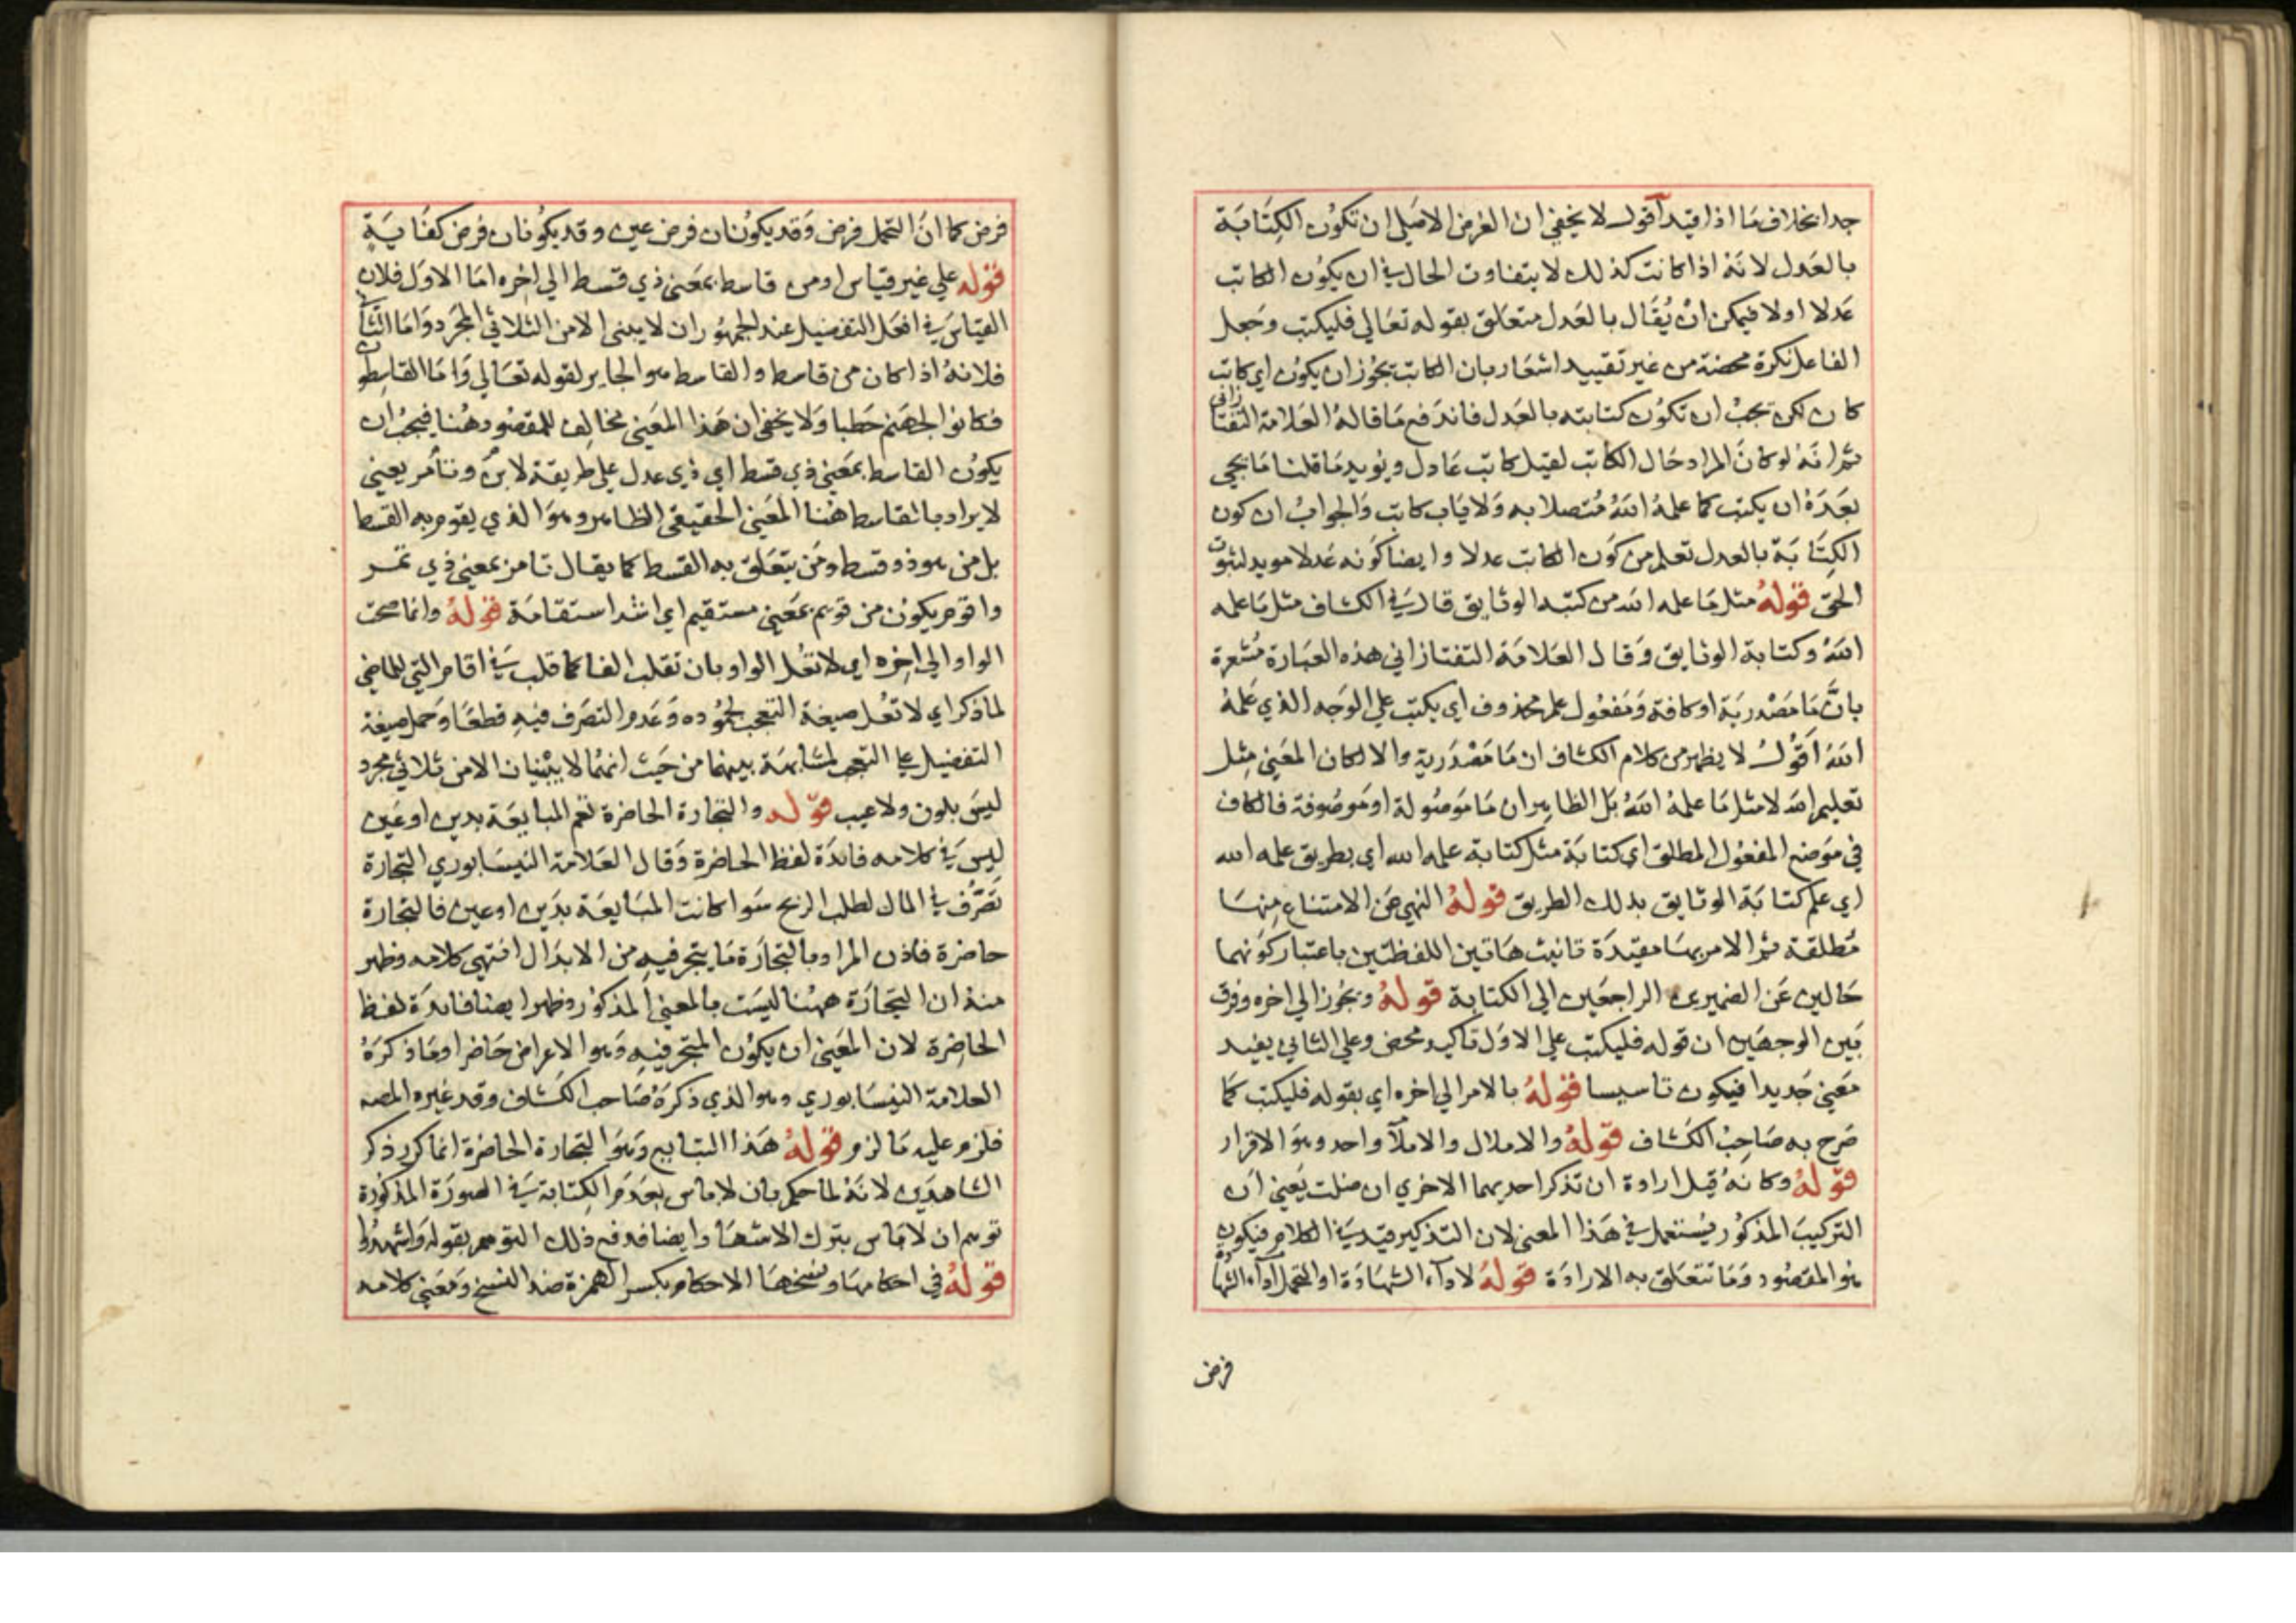 جدا بخلاف ما اذا قيد اقول لا يخفي ان الغرض الاصلي ان تكون الكتابة
بالعدل لانه اذا كانت كذلك لا يتفاوت الحال في ان يكون الكاتب
عدلا اولا فيمكن ان يقال بالعدل متعلق بقوله تعالي فليكتب وجعل
الفاعل نكرة محضة من غير تقييد اشعار بان الكاتب يجوز ان يكون اي كاتب
كان لكن يجب ان تكون كتابته بالعدل فاندفع ما قاله العلامة التفتازاني
ثم انه لو كان المراد حال الكاتب لقيل كاتب عادل ويويد ما قلنا ما يجي
بعده ان يكتب كما علمه الله متصلا به ولا ياب كاتب والجواب ان كون
الكتابة بالعدل تعلم من كون الكاتب عدلا وايضا كونه عدلا مويد لثبوت
الحق قوله مثل ما علمه الله من كتبه الوثايق قال في الكشاف مثل ما علمه
الله وكتابة الوثايق وقال العلامة التفتازاني هذه العبارة مشعرة
بان ما مصدرية او كافة ومفعول علم محذوف اي يكتب علي الوجه الذي علمه
الله اقول لا يظهر من كلام الكشاف ان ما مصدرية والا لكان المعني مثل
تعليم الله لا مثل ما علمه الله بل الظاهر ان ما موصولة او موصوفة فالكاف
في موضع المفعول المطلق اي كتابة مثل كتابة علمه الله اي بطريق علمه الله
اي علم كتابة الوثايق بذلك الطريق قوله النهي عن الامتناع منها
مطلقة ثم الامر بها مقيدة تانيث هاتين اللفظتين باعتبار كونهما
حالين عن الضميرين الراجعين الي الكتابة قوله ويجوز الي اخره وفرق
بين الوجهين ان قوله فليكتب علي الاول تاكيد محض وعلي الثاني يفيد
معني جديدا فيكون تاسيسا قوله بالامر الي اخره اي بقوله فليكتب كما
صرح به صاحب الكشاف قوله والاملال والاملآ واحد وهو الاقرار
قوله وكانه قيل ارادة ان تذكر احديهما الاخري ان ضلت يعني ان
التركيب المذكور يستعمل في هذا المعني لان التذكير قيد في الكلام فيكون
هو المقصود وما تتعلق به الارادة قوله لادآء الشهادة او التحمل ادآء الشهادة
فرض
فرض كما ان التحمل فرض وقد يكونان فرض عين وقد يكونان فرض كفاية
قوله علي غير قياس او من قاسط بمعني ذي قسط الي اخره اما الاول فلان
القياس في افعل التفضيل عند الجمهور ان لا يبني الا من الثلاثي المجرد واما الثاني
فلانه اذا كان من قاسط والقاسط هو الجاير لقوله تعالي واما القاسطون
فكانوا لجهنم حطبا ولا يخفي ان هذا المعني مخالف للمقصود هنا فيجب ان
يكون القاسط بمعني ذي قسط اي ذي عدل علي طريقة لابن وتامر يعني
لا يراد بالقاسط هنا المعني الحقيقي الظاهر وهو الذي يقوم به القسط
بل من هو ذو قسط ومن يتعلق به القسط كما يقال تامر بمعني ذي تمر
واقوم يكون من قويم بمعني مستقيم اي اشد استقامة قوله وانما صحت
الواو الي اخره اي لا تعل الواو بان تقلب الفا كما قلب في اقام التي للماضي
لما ذكر اي لا تعل صيغة التعجب لجموده وعدم التصرف فيه قطعا وحمل صيغة
التفضيل علي التعجب لمشابهة بينهما من حيث انهما لا يبنيان الا من ثلاثي مجرد
ليس بلون ولا عيب قوله والتجارة الحاضرة تعم المبايعة بدين او عين
ليس في كلامه فائدة لفظ الحاضرة وقال العلامة النيسابوري التجارة
تصرف في المال لطلب الربح سوا كانت المبايعة بدين او عين فالتجارة
حاضرة فاذن المراد بالتجارة ما يتجر فيه من الابدال انتهي كلامه وظهر
منه ان التجارة ههنا ليست بالمعني المذكور وظهر ايضا فايدة لفظ
الحاضرة لان المعني ان يكون المتجر فيه وهو الاعراض حاضرا وما ذكره
العلامة النيسابوري وهو الذي ذكره صاحب الكشاف وقد غيره المصه
فلزم عليه ما لزم قوله هذا التبايع وهو التجارة الحاضرة انما كرر ذكر
الشاهدين لانه لما حكم بان لا باس بعدم الكتابة في الصورة المذكورة
توهم ان لا باس بترك الاشهاد ايضا فدفع ذلك التوهم بقوله واشهدوا
قوله في احكامها ونسخها الاحكام بكسر الهمزة ضد النسخ ومعني كلامه